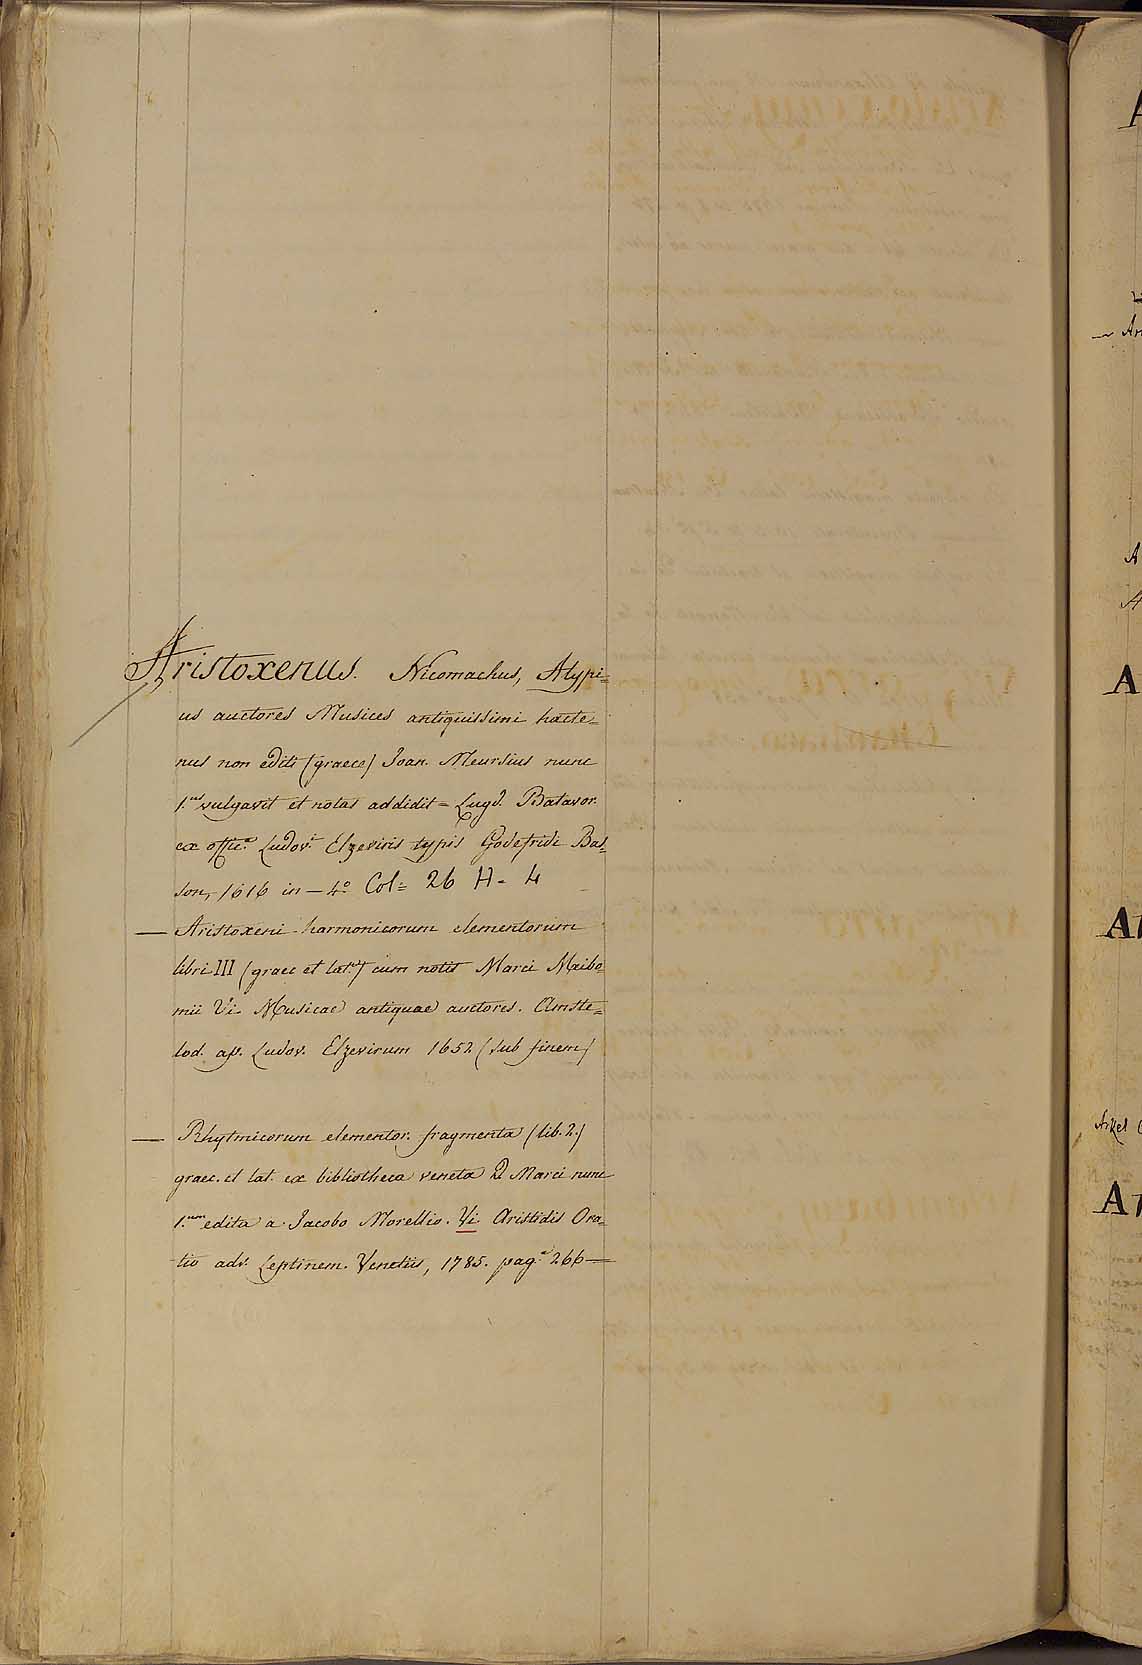 Aristoxenus. Nicomachus, Alypi=
us auctores Musices antiquissimi hacte=
nus non editi (graece) Joan. Meursius nunc
1.us vulgavit et notas addidit = Lugd. Batavor.
ex offic.a Ludov.i Elzeviris typis Godefridi Bas=
son, 1616 in – 4.o Col= 26 H= 4
— Aristoxeni harmonicorum elementorum
libri III (graec et lat.e) cum notis Marci Meibo=
mii Vi. Musicae antiquae auctores. Amste=
lod. ap. Ludov. Elzevirum 1652 (sub finem)
— Rhytmicorum elementor. fragmenta (lib. 2.)
graec. et lat. ex bibliotheca veneta D. Marci nunc
1.um edita a Jacobo Morellio. Vi Aristidis Ora=
tio adv. Leptinem. Venetiis, 1785. pag.a 266 =
A
Ar
A
A
A
A
Arkel
A